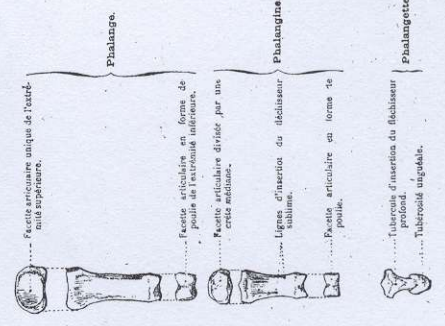 Phalange.
Facette articulaire unique de l'extré-
mité supérieure.
Facette articulaire en forme de
poulie de l'extrémité inférieure.
Phalangine
Facette articulaire divisée par une
crête médiane.
Lignes d'insertion du fléchisseur
sublime.
Facette articulaire en forme de
poulie.
Phalangette
Tubercule d'insertion du fléchisseur
profond.
Tubérosité unguéale.